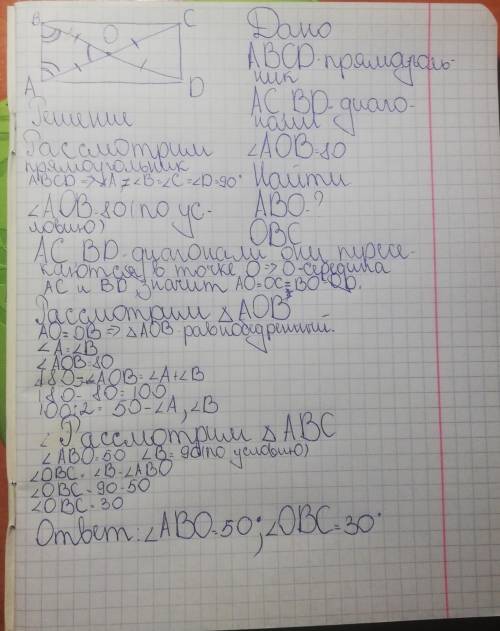 B
C
O
A
D
Дано
ABCD-прямоуголь-
ник
AC BD-диаго-
нали
∠AOB-80
Найти
ABO-?
OBC
Решение
Рассмотрим
прямоугольник
ABCD => ∠A=∠B=∠C=∠D=90°
∠AOB-80(по ус-
ловию)
AC BD-диагонали они пересе-
каются в точке O => O-середина
AC и BD значит AO=OC=BO=OD.
Рассмотрим △AOB
AO=OB => △AOB равнобедренный.
∠A=∠B
∠AOB-80
180-∠AOB=∠A+∠B
180-80=100
100:2= 50-∠A,∠B
∠ Рассмотрим △ABC
∠ABO-50 ∠B=90(по условию)
∠OBC=∠B-∠ABO
∠OBC=90-50
∠OBC=30
Ответ:∠ABO=50°;∠OBC=30°